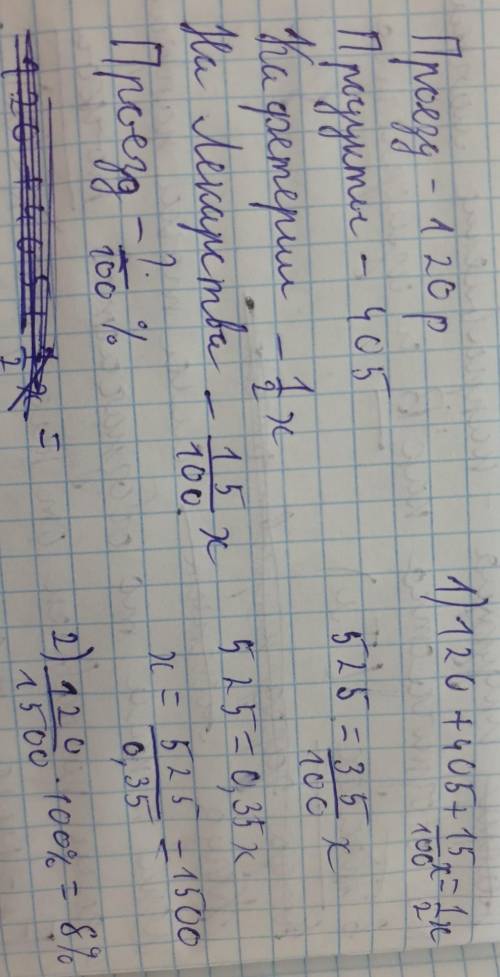 Проезд - 120 р
Продукты - 405
Кафетерий - 1/2 x
На Лекарства - 15/100 x
Проезд - ?/100 %
1) 120 + 405 + 15/100 x = 1/2 x
525 = 35/100 x
525 = 0,35 x
x = 525/0,35 = 1500
2) 120/1500 · 100% = 8%